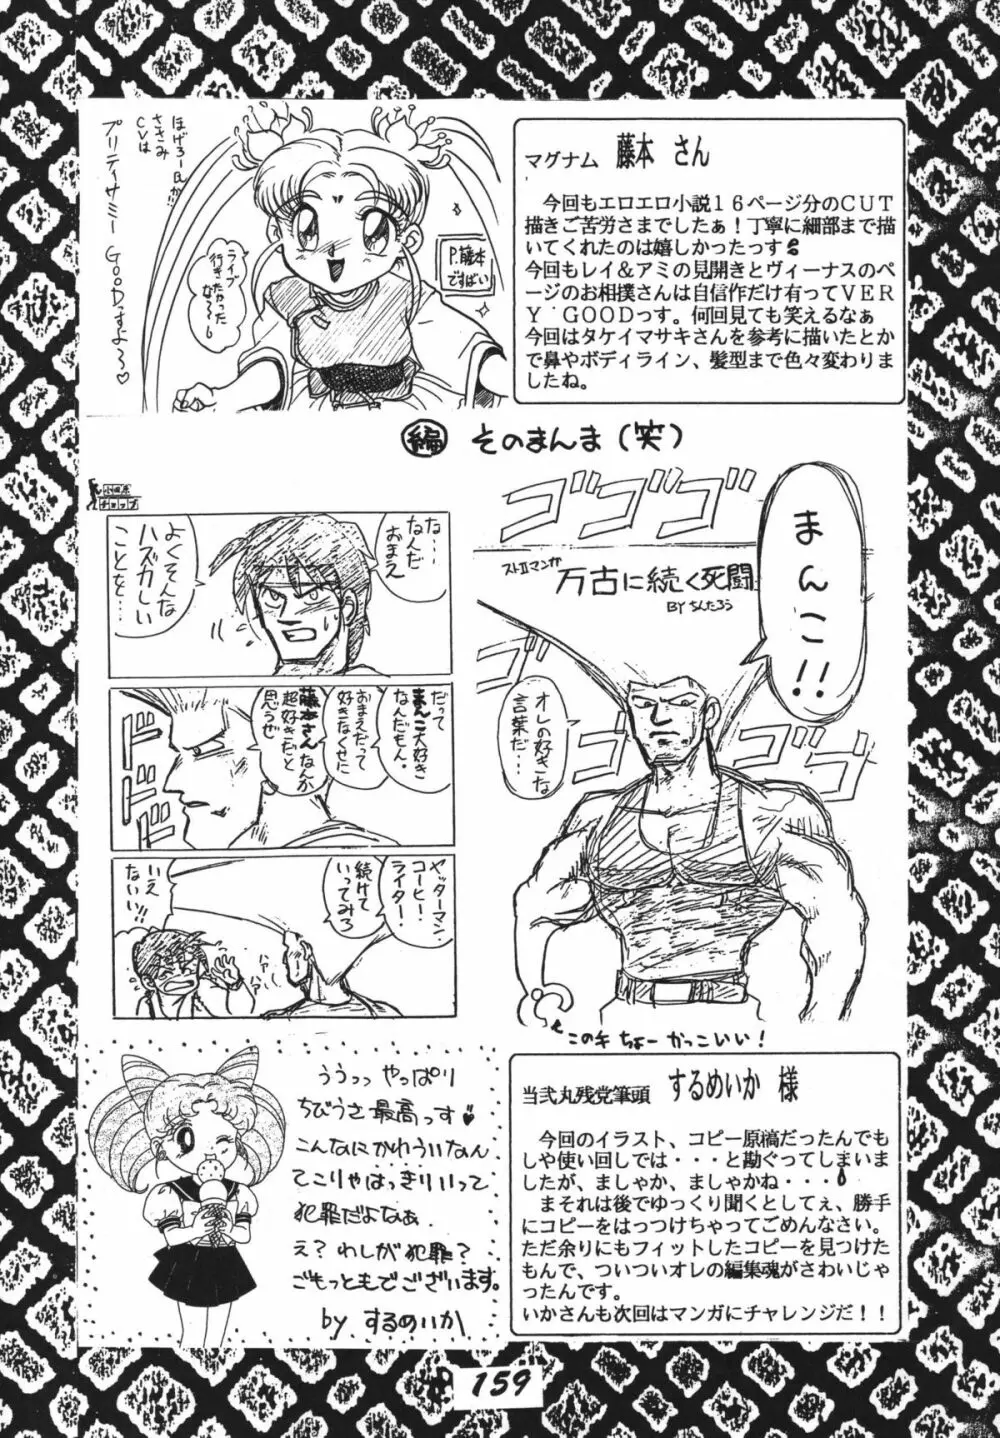 ほげろーＢか
ささみ
CVは
プリティサミー GOODっすよ〜♡
ライブ
行きたかった
な〜〜
P.藤本
ですばい
マグナム 藤本 さん
今回もエロエロ小説１６ページ分のＣＵＴ
描きご苦労さまでしたぁ！丁寧に細部まで描
いてくれたのは嬉しかったっす
今回もレイ＆アミの見開きとヴィーナスのペ
ージのお相撲さんは自信作だけ有ってＶＥＲ
Ｙ ＧＯＯＤっす。何回見ても笑えるなぁ
今回はタケイマサキさんを参考に描いたとか
で鼻やボディライン、髪型まで色々変わりま
したね。
編 そのまんま（笑）
ゴゴゴ
まんこ!!
ストⅡマンガ
万古に続く死闘
BY ちんたろう
オレの好きな
言葉だ…
ゴゴ
ゴゴ
チョップ
な…
なんだ
おまえ
よくそんな
ハズカしい
ことを…
だって
まんこ大好き
なんだもん。
おまえだって
好きなくせに
藤本さんなんか
超好きだと
思うぜ
ドドド
ヤッターマン
コーヒー！
ライター！
続けて
いってみろ
いえ
ないい!!
ハァ
ハァ
この手 ちょーかっこいい！
ううっっ やっぱり
ちびうさ最高っす♥
こんなにかわういなん
てこりゃはっきりいって
犯罪だよなぁ
え？わしが犯罪？
ごもっともでございます。
by するめいか
当弐丸残党筆頭 するめいか 様
今回のイラスト、コピー原稿だったんでも
しや使い回しでは・・・と勘ぐってしまいま
したが、ましゃか、ましゃかね・・・
まそれは後でゆっくり聞くとしてぇ、勝手
にコピーをはっつけちゃってごめんなさい。
ただ余りにもフィットしたコピーを見つけた
もんで、ついついオレの編集魂がさわいじゃ
ったんです。
いかさんも次回はマンガにチャレンジだ！！
159